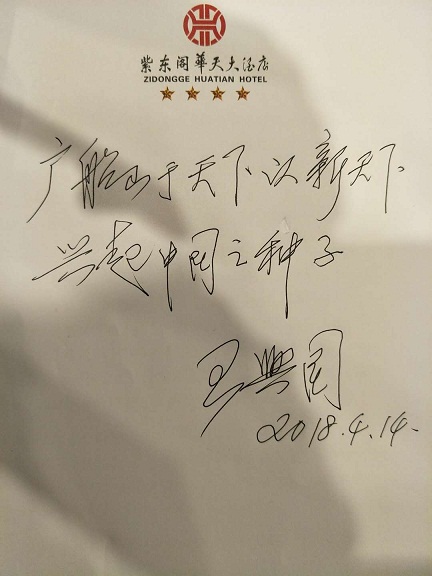 紫东阁華天大酒店
ZIDONGGE HUATIAN HOTEL
广船山于天下以新天下
兴起中国之种子
王興国
2018.4.14.